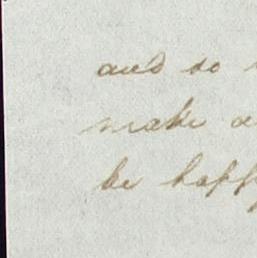 and so
make a
be happy